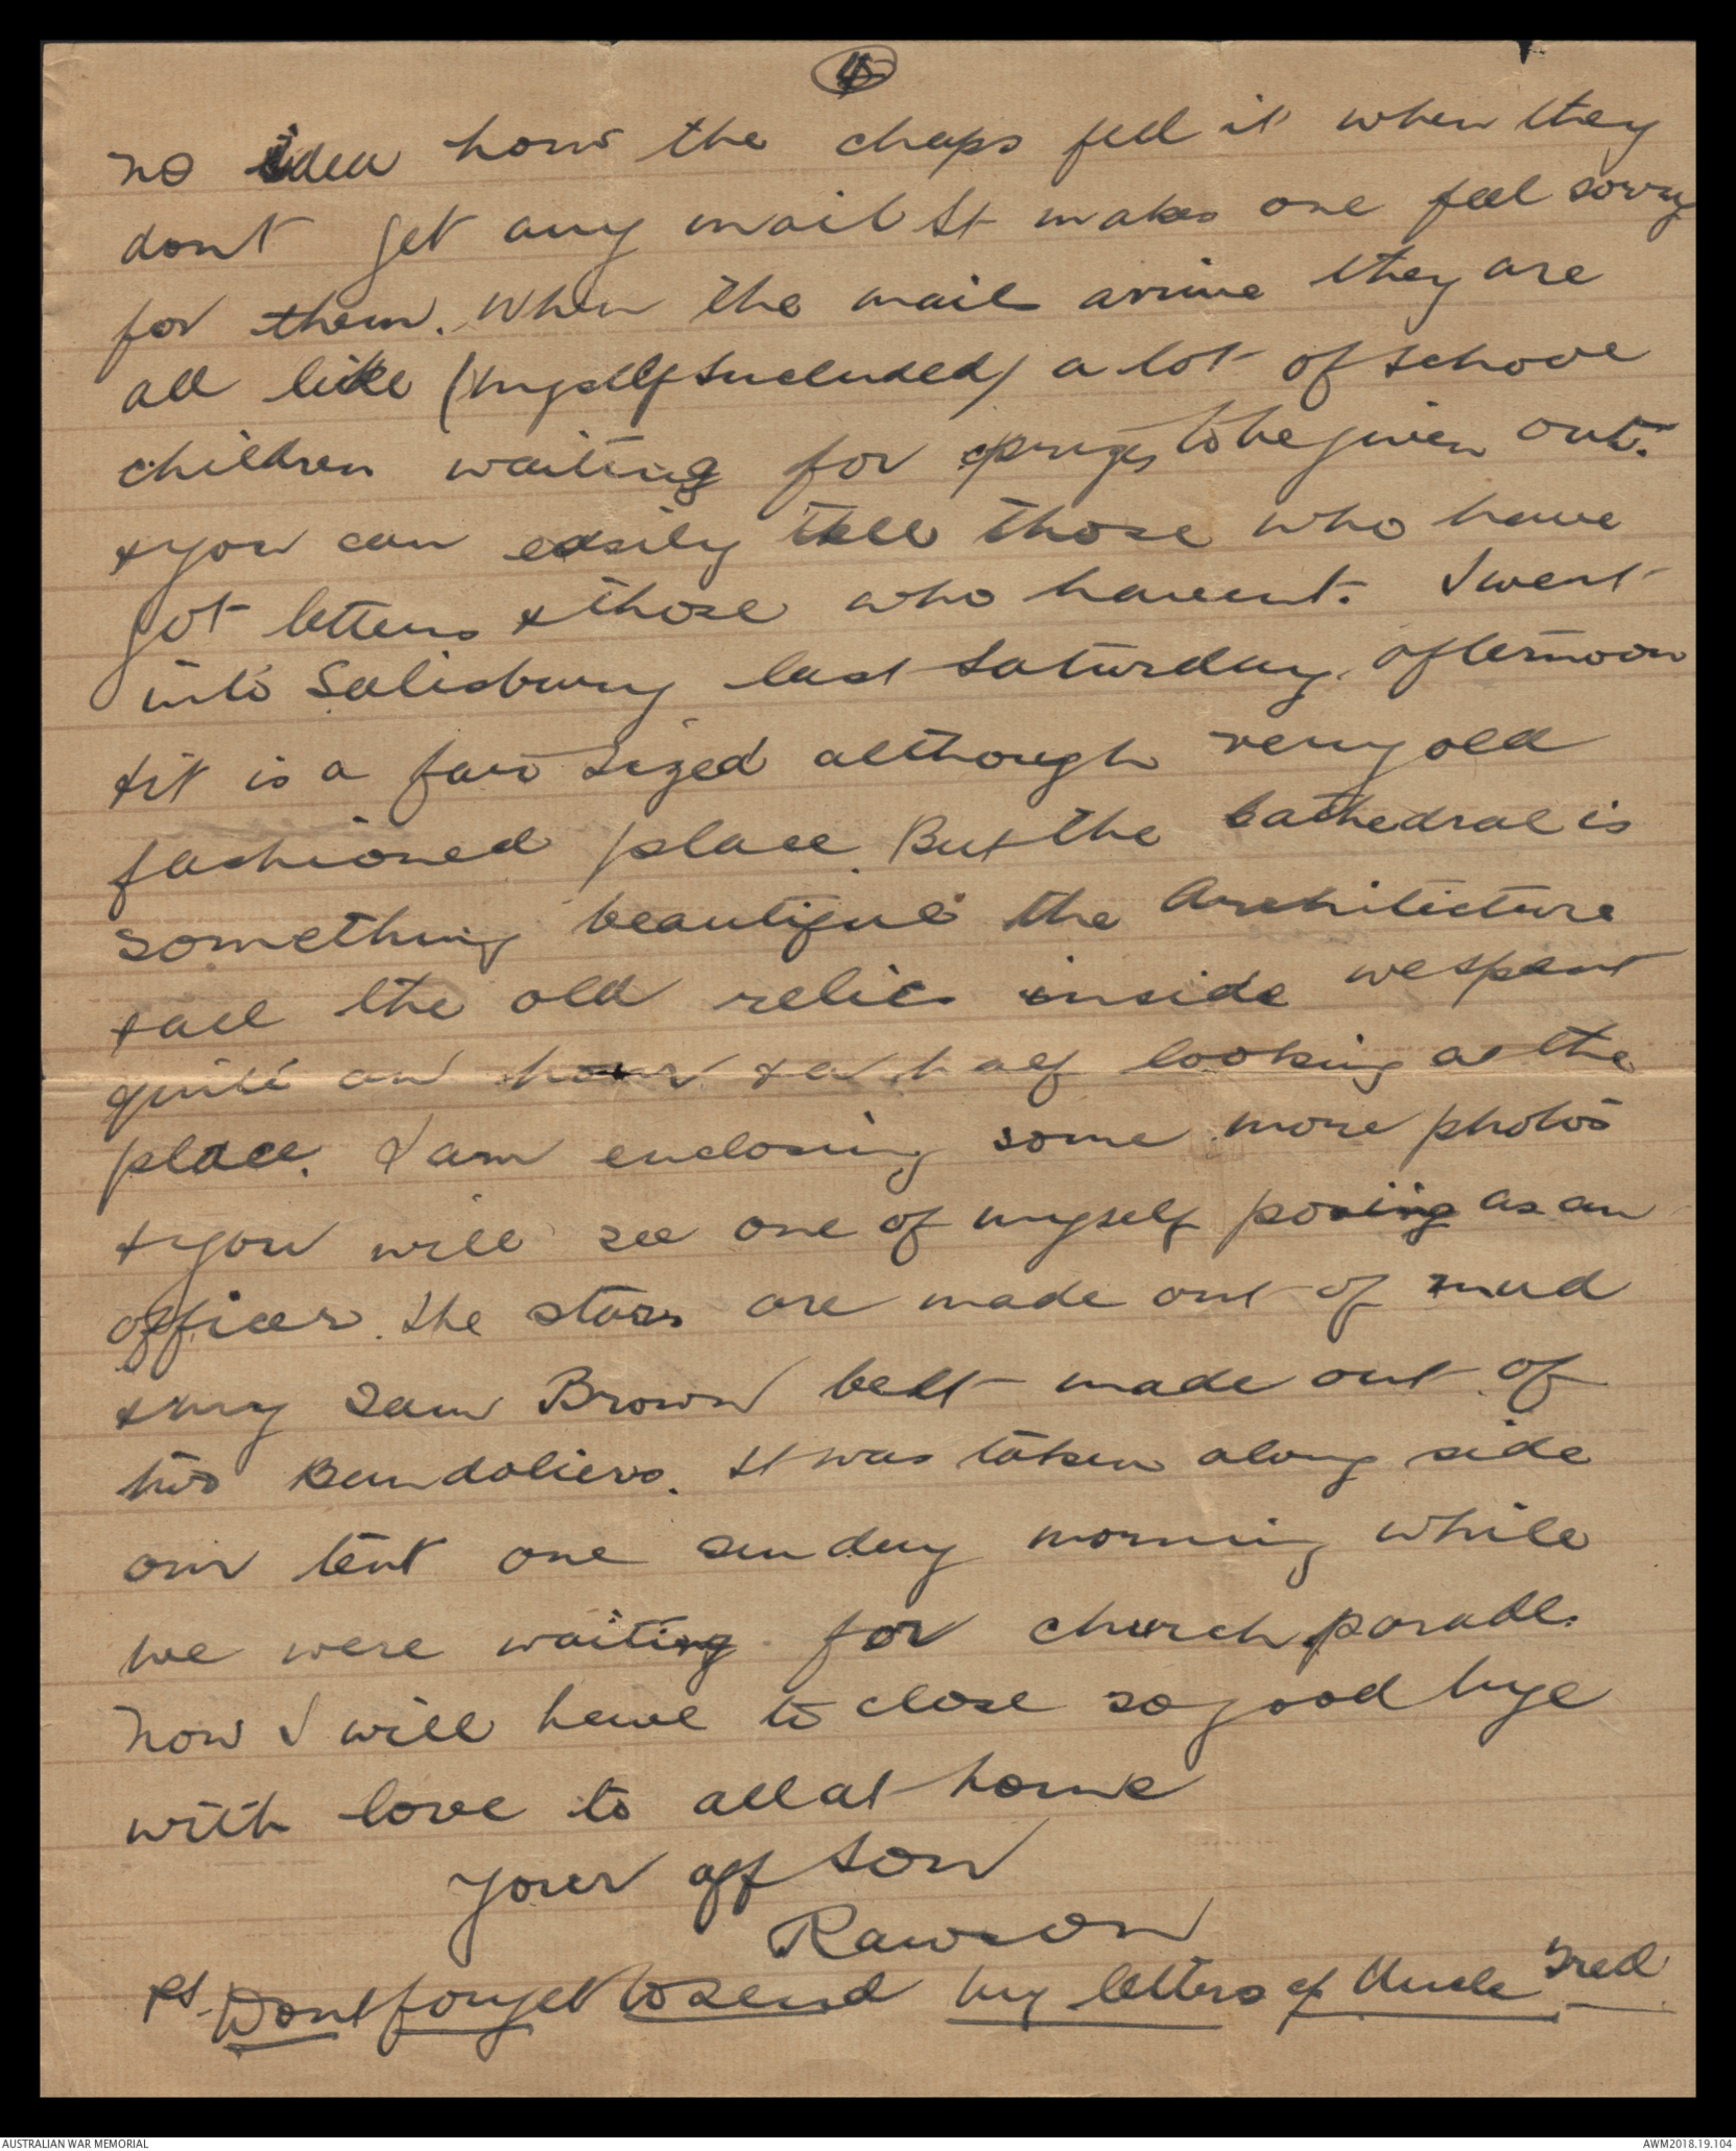 no idea how the chaps feel it when they
dont get any mail It makes one feel sorry
for them. When the mail arrive they are
all like (myself included) a lot of school
children waiting for prizes to be given out.
& you can easily tell those who have
got letters & those who havent. I went
into Salisbury last Saturday afternoon
& it is a fair sized although very old
fashioned place. But the Cathedral is
something beautiful the Architecture
& all the old relics inside we spent
quite an hour & a half looking at the
place. I am enclosing some more photos
& you will see one of myself posing as an
officer. the stars are made out of mud
& my Sam Brown belt made out of
two Bandoliers. It was taken along side
our tent one sunday morning while
we were waiting for church parade.
Now I will have to close so good bye
with love to all at home
Your aff son
Rawson
Ps. Dont forget to send my letters c/ Uncle Fred
AUSTRALIAN WAR MEMORIAL
AWM2018.19.104